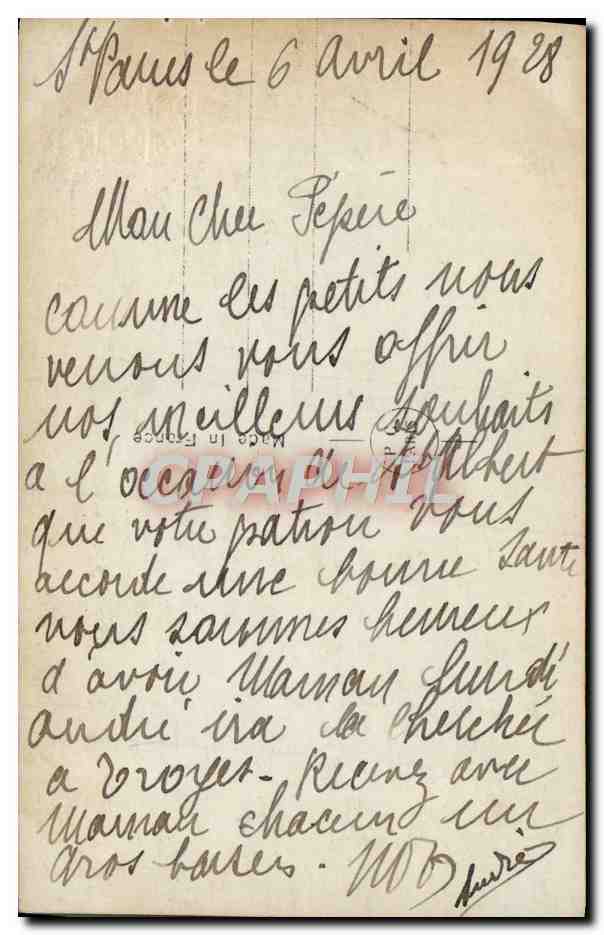 St Parres le 6 avril 1928
Mon cher Pépère
comme les petits nous
venons vous offrir
nos meilleurs souhaits
Made in France
a l'occasion de St Albert
CPAPHIL
que votre patron vous
accorde une bonne santé
nous sommes heureux
d'avoir Maman lundi
andré ira la cherchée
a Troyes. Recevez avec
Maman chacun un
gros baisers.
André